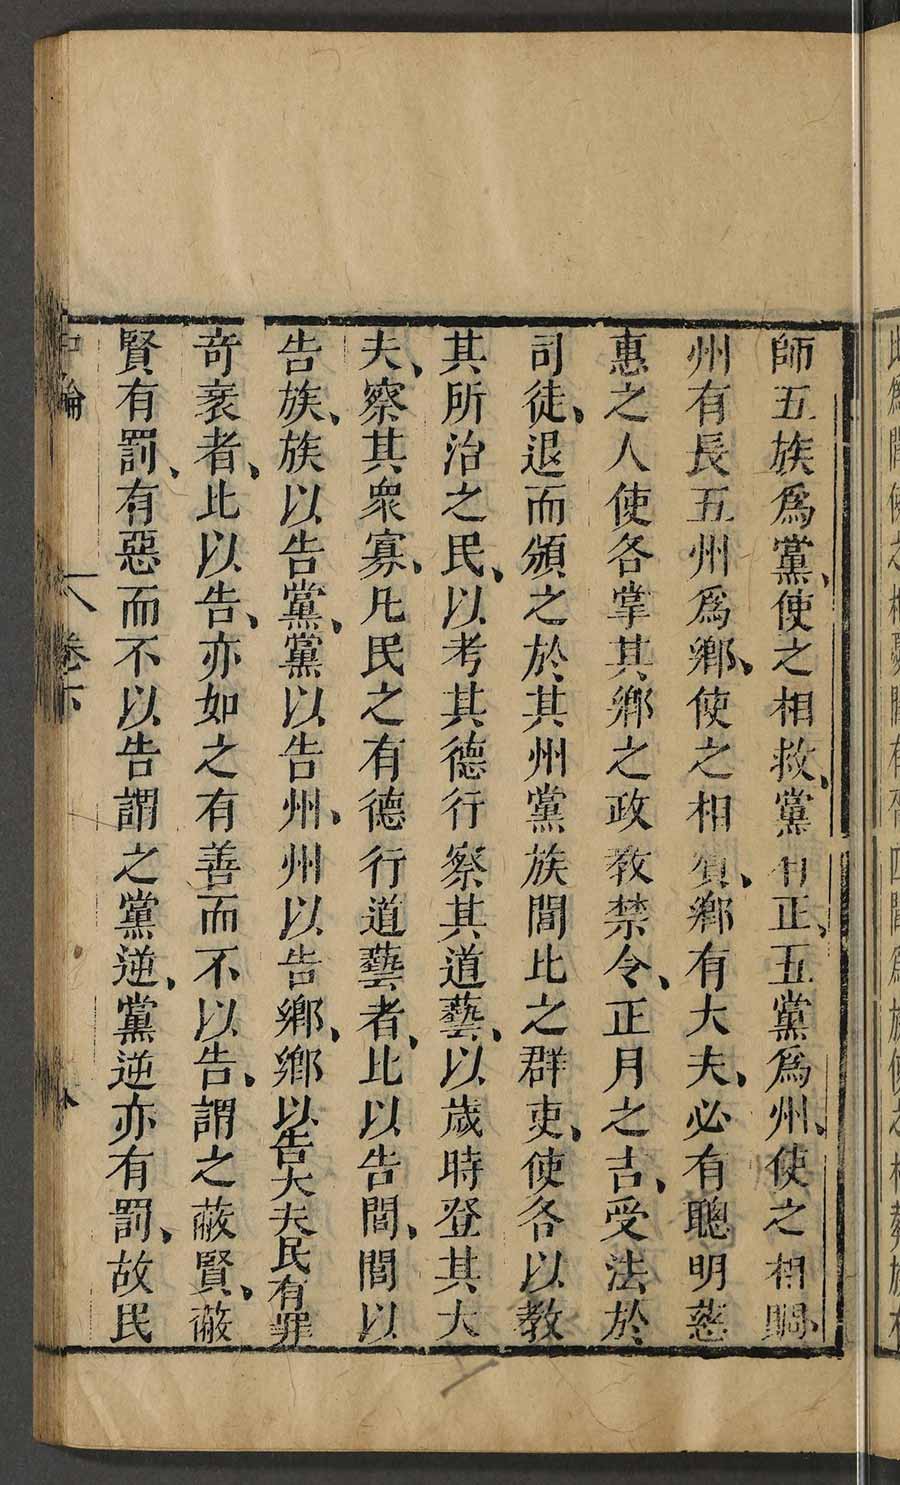 師五族爲黨、使之相救、黨有正、五黨爲州、使之相賙、
州有長五州爲鄉、使之相賓、鄉有大夫、必有聰明慈
惠之人使各掌其鄉之政敎禁令、正月之吉、受法於
司徒、退而頒之於其州黨族閭比之群吏、使各以教
其所治之民、以考其德行察其道藝、以歲時登其大
夫、察其衆寡、凡民之有德行道藝者、比以告閭、閭以
告族、族以告黨、黨以告州、州以告鄉、鄉以告大夫民有罪
奇衺者、比以告、亦如之有善而不以告、謂之蔽賢、蔽
賢有罰、有惡而不以告謂之黨逆、黨逆亦有罰、故民
中論 卷下